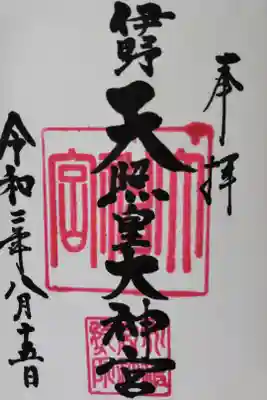 奉拝
伊野
天照皇大神宮
令和三年八月十五日